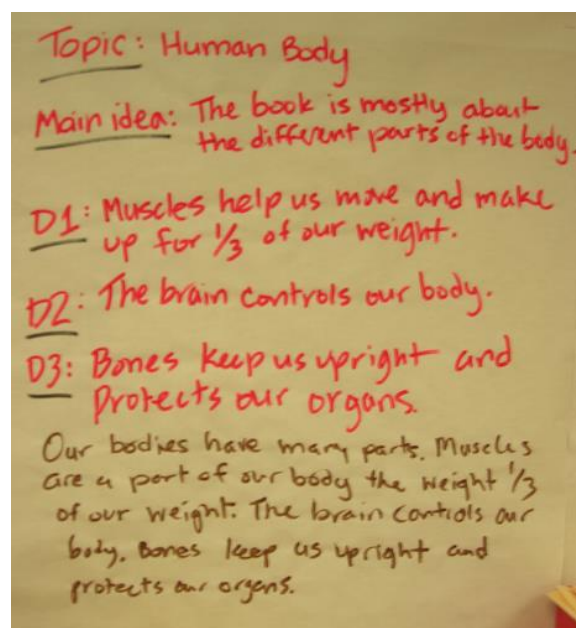 Topic: Human Body
Main idea: The book is mostly about
the different parts of the body.
D1: Muscles help us move and make
up for 1/3 of our weight.
D2: The brain controls our body.
D3: Bones keep us upright and
Protects our organs.
Our bodies have many parts. Muscles
are a part of our body the weight 1/3
of our weight. The brain controls our
body. Bones keep us upright and
protects our organs.